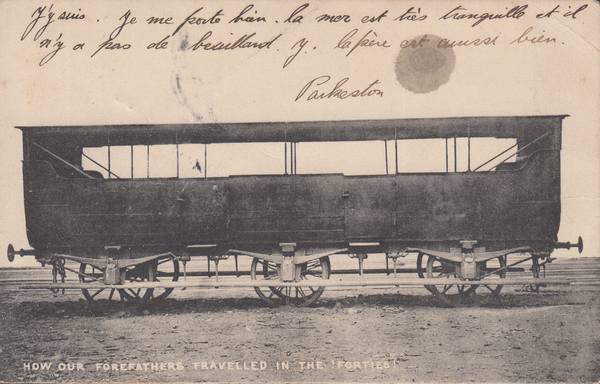 J'y suis. Je me porte bien. la mer est très tranquille et il
n'y a pas de brouillard. y. la père est aussi bien.
Parkeston
HOW OUR FOREFATHERS TRAVELLED IN THE "FORTIES"